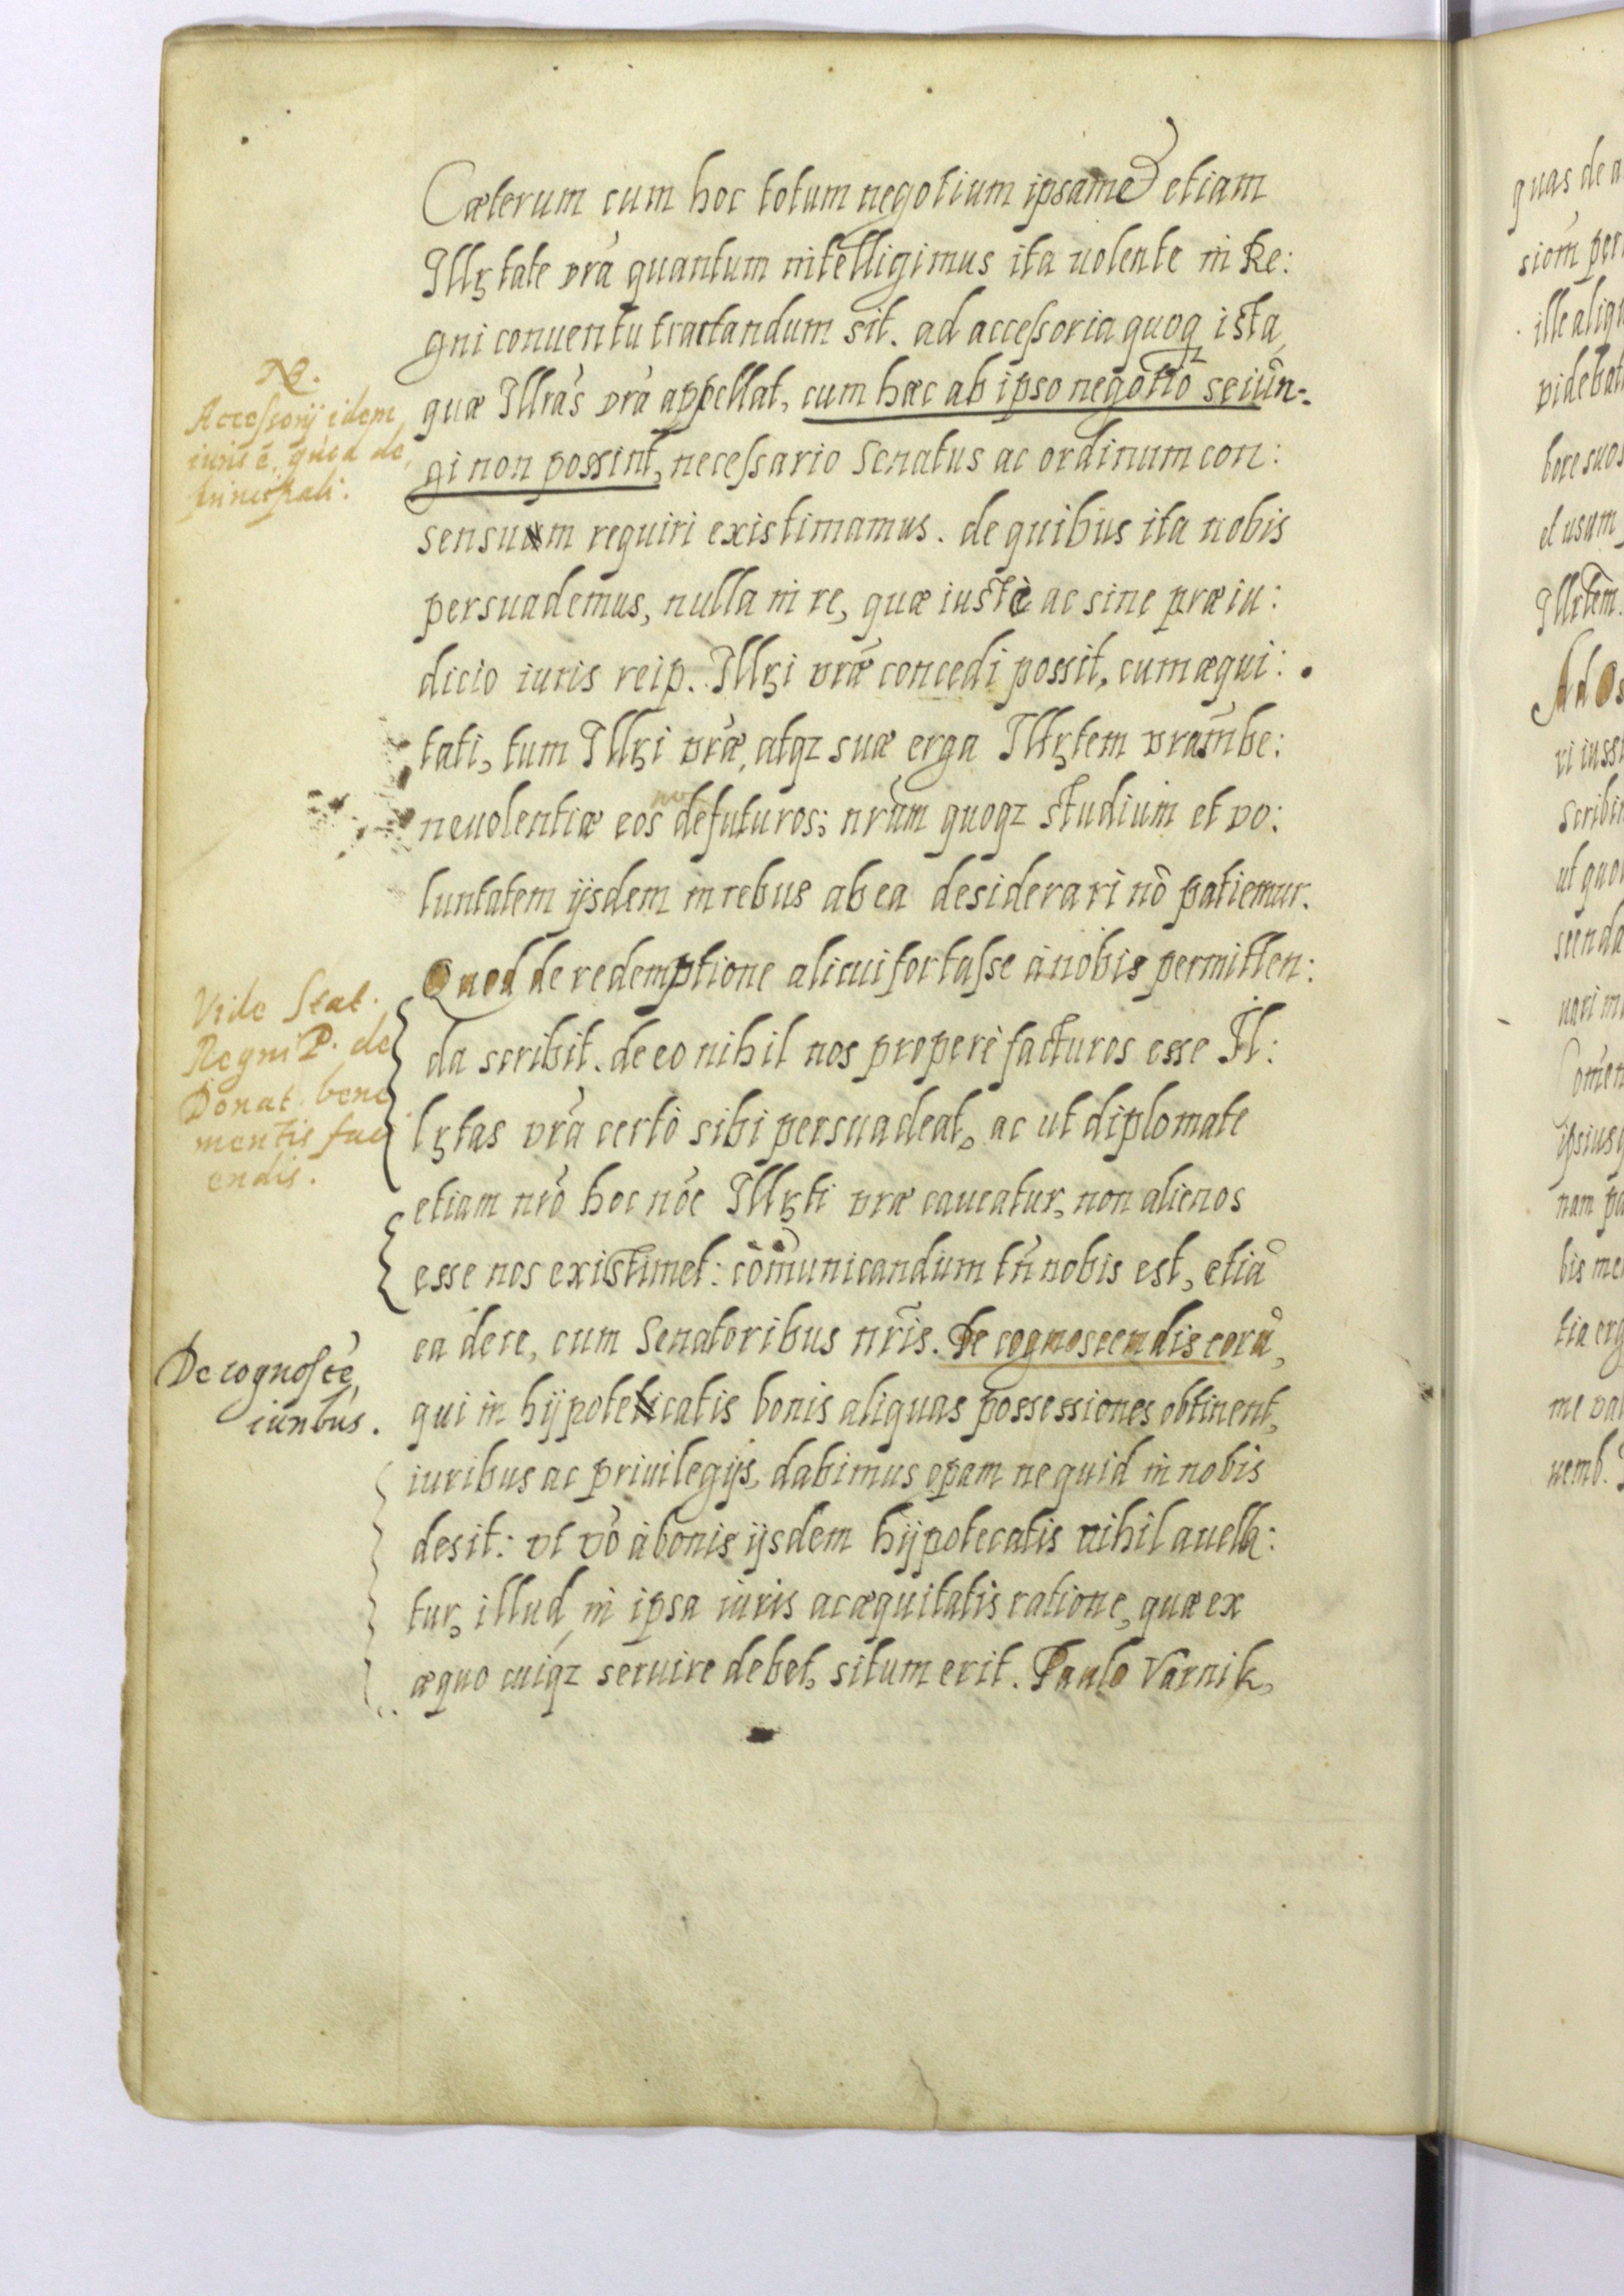 Cæterum cum hoc totum negotium ipsamet etiam
Illrtate vrã quantum intelligimus ita uolente in Re:
gni conuentu tractandum sit. ad accessoria quoq ista,
quæ Illrãs vrã appellat, cum hæc ab ipso negotio seiun-
gi non possint, necessario Senatus ac ordinum con:
sensum requiri existimamus. de quibus ita nobis
persuademus, nulla in re, quæ iustè ac sine præiu:
dicio iuris reip. Illri vræ concedi possit, cum æqui:
tati, tum Illri vræ, atqz suæ erga Illrtem vram be:
neuolentiæ eos defuturos; nrum quoqz studium et vo:
luntatem ijsdem in rebus ab ea desiderari nõ patiemur.
Quod de redemptione alicui fortasse à nobis permitten:
da scribit. de eo nihil nos properè facturos esse Il:
lrtas vrã certò sibi persuadeat, ac ut diplomate
etiam nrõ hoc nõe Illrti vræ caueatur, non alienos
esse nos existimet: cõmunicandum tñ nobis est, etiã
ea de re, cum Senatoribus nris. De cognoscendis eorũ,
qui in hypotecatis bonis aliquas possessiones obtinent,
iuribus ac priuilegijs, dabimus operam ne quid in nobis
desit: vt võ à bonis ijsdem hypotecatis nihil auella:
tur, illud in ipsa iuris ac æquitatis ratione, quæ ex
æquo cuiqz seruire debet, situm erit. Paulo Varnik,
NB.
Accessorij idem
iuris ẽ, quod de
principali.
Vide Stat.
Regni P. de
Donat. bene
mentis faci
endis.
De cognoscẽ,
iuribus.
quas de a
siom per
ille aliq
videbat
bore suos
et usum
Illrtem.
Ad Os
ri iussi
scribit
ut quo
scenda
uari m
ipsiusq
nam pa
bis me
tia erg
me val
uemb.